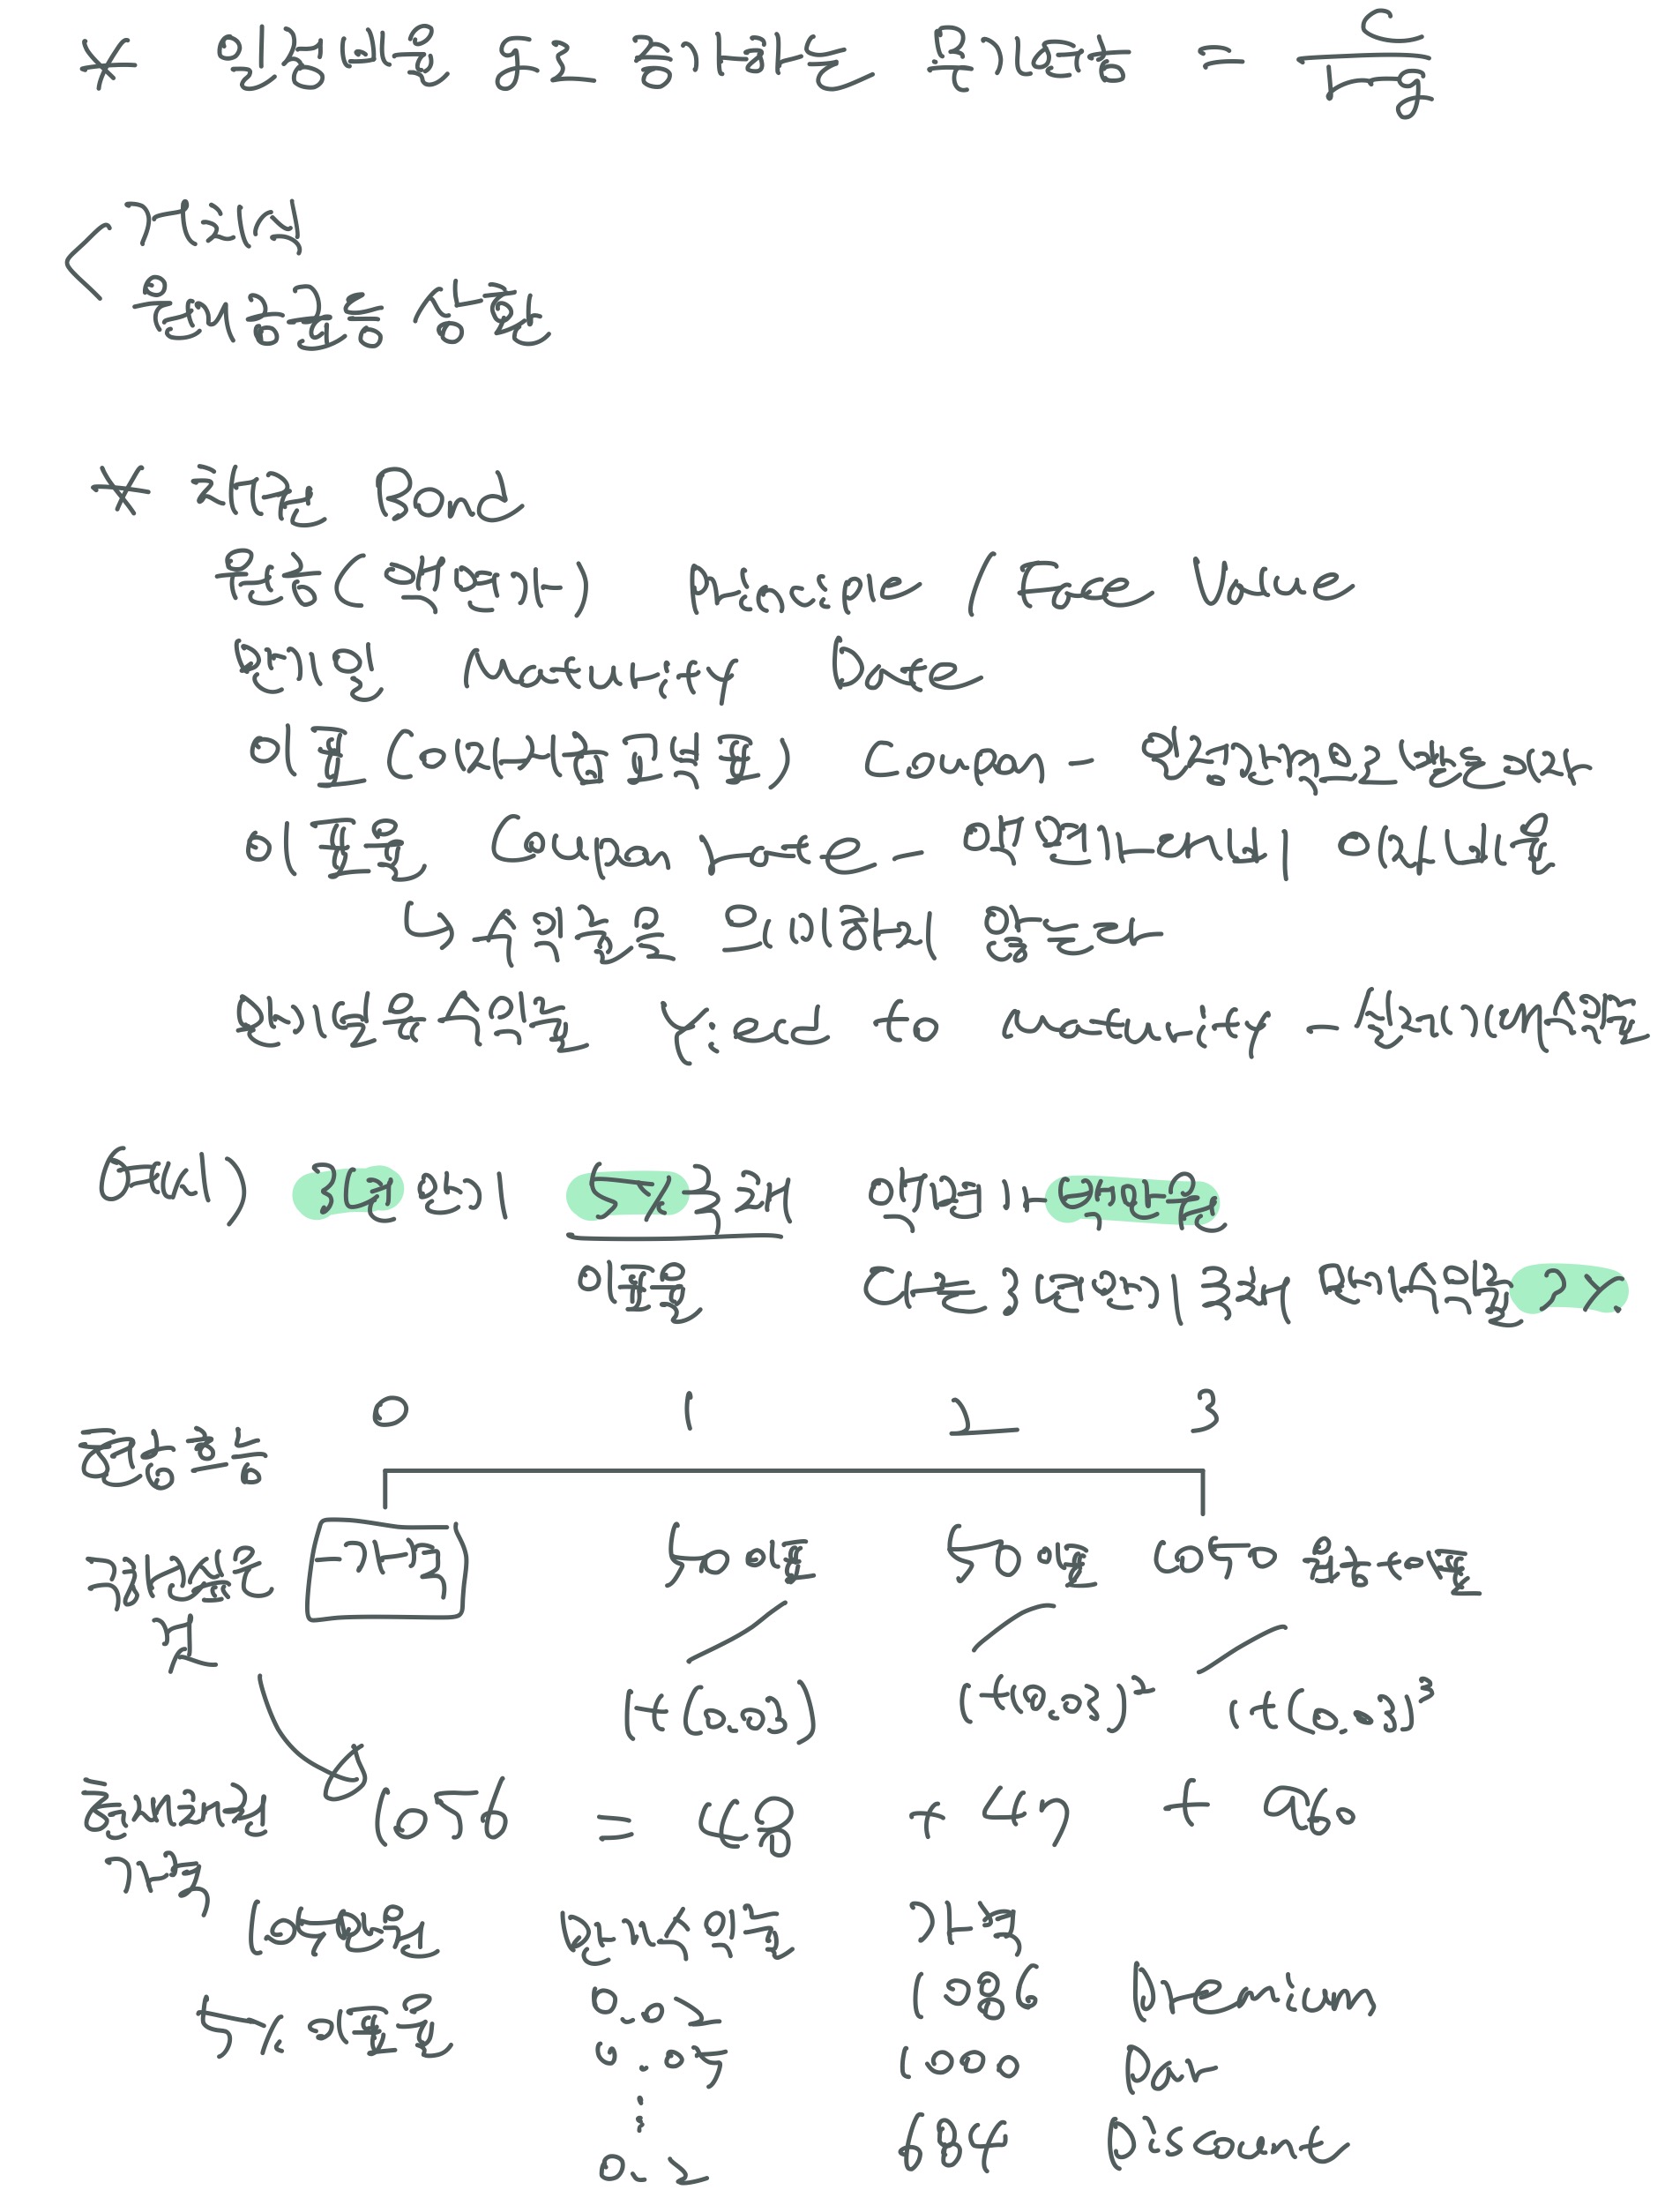 * 일정비율으로 증가하는 무기연송 = C / r-g
거치식
원리금균등 상환
* 채권 Bond
원층(액면가) Principle / Face Value
만기일 Maturity Date
이표 (이자지급금액표) Coupon - 일정간격으로발표이자
이표율 Coupon rate - 액면가대비 이자비율
↳ 수익률을 의미하지 않는다
만기보유수익률 Yied to Maturity - 실제기대수익률
예시) 3년만기 5%국채 액면가액백만원
이표율 다른3년만기국채 만기수익률 3%
0 1 2 3
현송흐름
-가격 50이표 50이표 1050 원송+이표
1+(0.03) 1+(0.03)² 1+(0.03)³
현재채권 1056 = 48 + 47 + 960
가격
105만원 만기수익률 가격
5% 이표율 0.02 1086 Premium
0.05 1000 Par
⋮
0.2 684 Discount